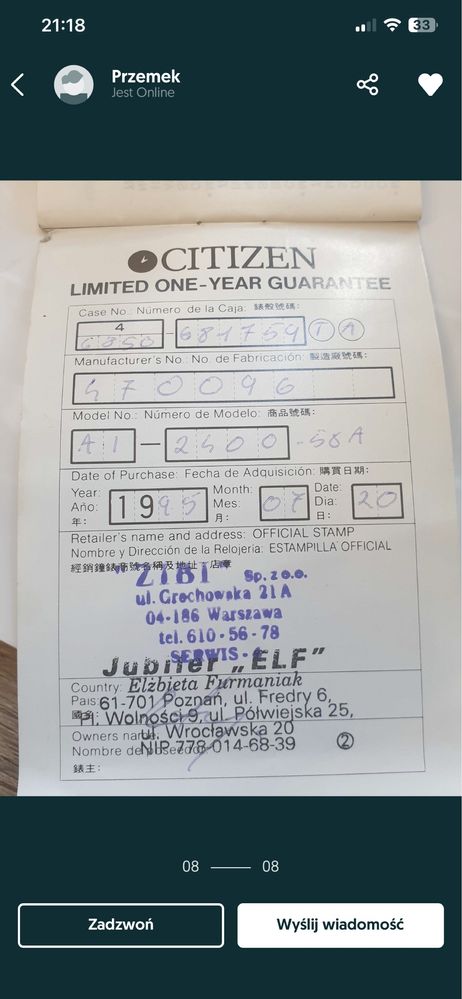 21:18
33
Przemek
Jest Online
CITIZEN
LIMITED ONE-YEAR GUARANTEE
Case No.: Número de la Caja: 錶殼號碼:
4
6850 - 681759 T A
Manufacturer's No.: No. de Fabricación: 製造廠號碼:
470096
Model No.: Número de Modelo: 商品號碼:
A1 - 2500 - 58A
Date of Purchase: Fecha de Adquisición: 購買日期:
Year: Año: 年: 1995 Month: Mes: 月: 07 Date: Dia: 日: 20
Retailer's name and address: OFFICIAL STAMP
Nombre y Dirección de la Relojeria: ESTAMPILLA OFFICIAL
經銷鐘錶商號名稱及地址: 店章
"ZIBI" Sp. z o.o.
ul. Grochowska 21A
04-186 Warszawa
tel. 610-56-78
SERWIS
Jubiler „ELF"
Country: Elżbieta Furmaniak
Pais: 61-701 Poznań, ul. Fredry 6,
Pl. Wolności 9, ul. Półwiejska 25,
Owners name: ul. Wrocławska 20
Nombre de poseedor NIP 778-014-68-39 2
錶主:
08 08
Zadzwoń
Wyślij wiadomość